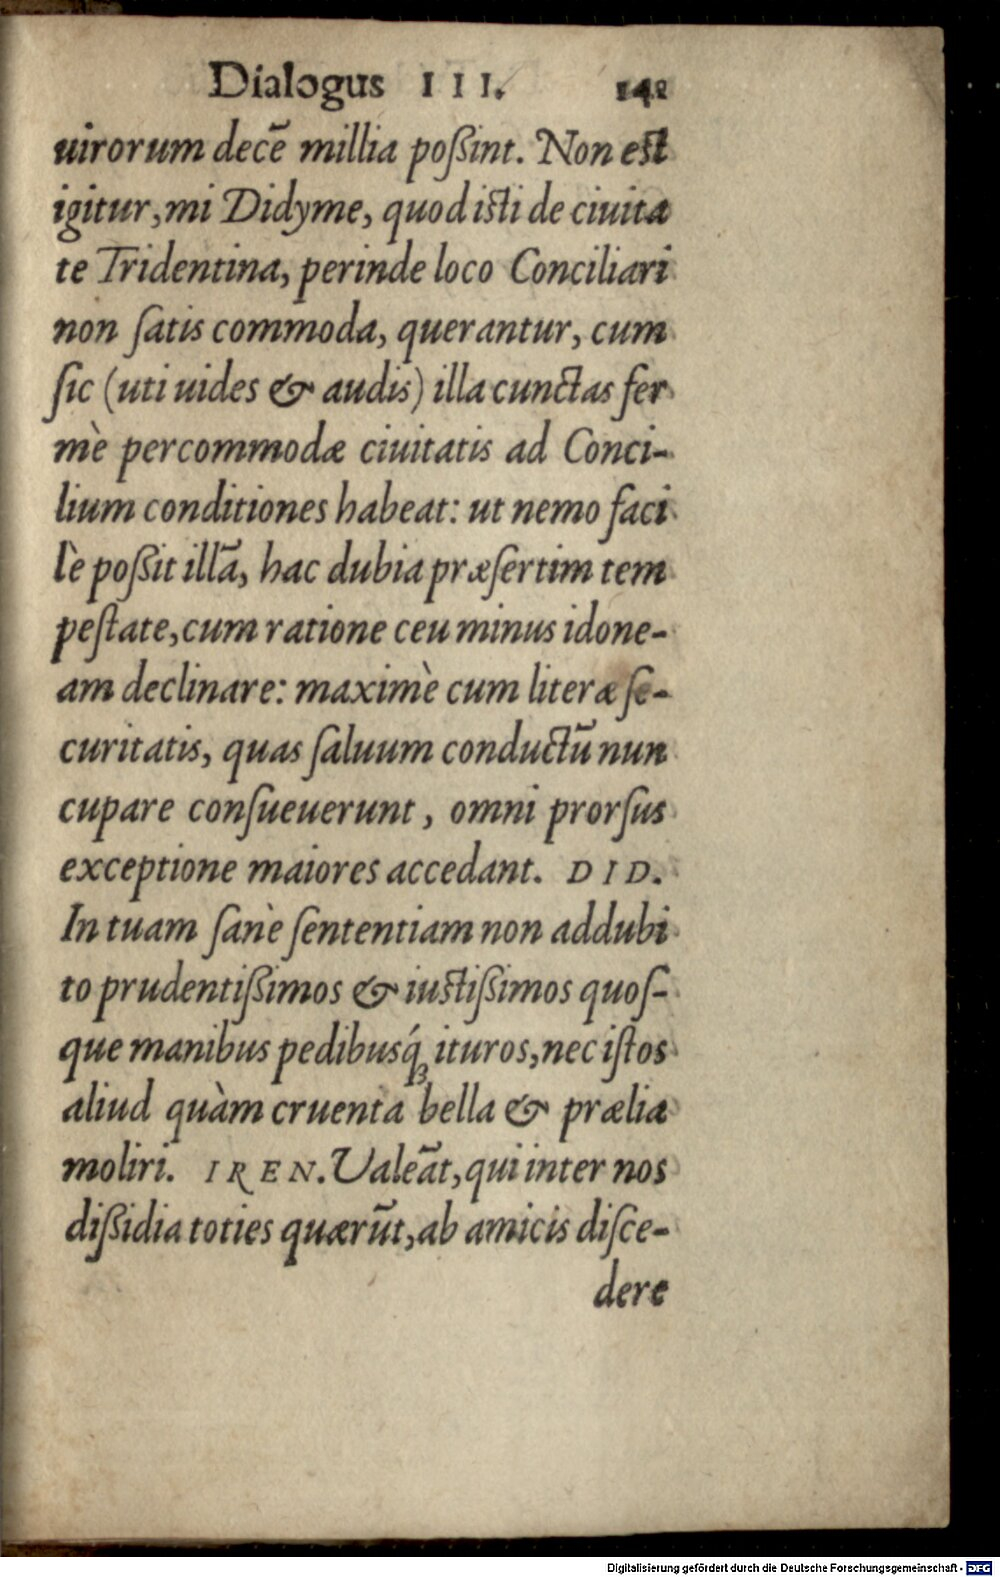 Dialogus III. 141
uirorum decē millia poßint. Non est
igitur, mi Didyme, quod isti de ciuita
te Tridentina, perinde loco Conciliari
non ſatis commoda, querantur, cum
ſic (uti uides & audis) illa cunctas fer
mè percommodæ ciuitatis ad Conci-
lium conditiones habeat: ut nemo faci
lè poßit illā, hac dubia præſertim tem
peſtate, cum ratione ceu minus idone-
am declinare: maximè cum literæ ſe-
curitatis, quas ſaluum conductū nun
cupare conſueuerunt, omni prorſus
exceptione maiores accedant. DID.
In tuam ſanè ſententiam non addubi
to prudentißimos & iustißimos quoſ-
que manibus pedibusq́ꝫ ituros, nec iſtos
aliud quàm cruenta bella & prælia
moliri. IREN. Ualeāt, qui inter nos
dißidia toties quærūt, ab amicis diſce-
dere
Digitalisierung gefördert durch die Deutsche Forschungsgemeinschaft - DFG